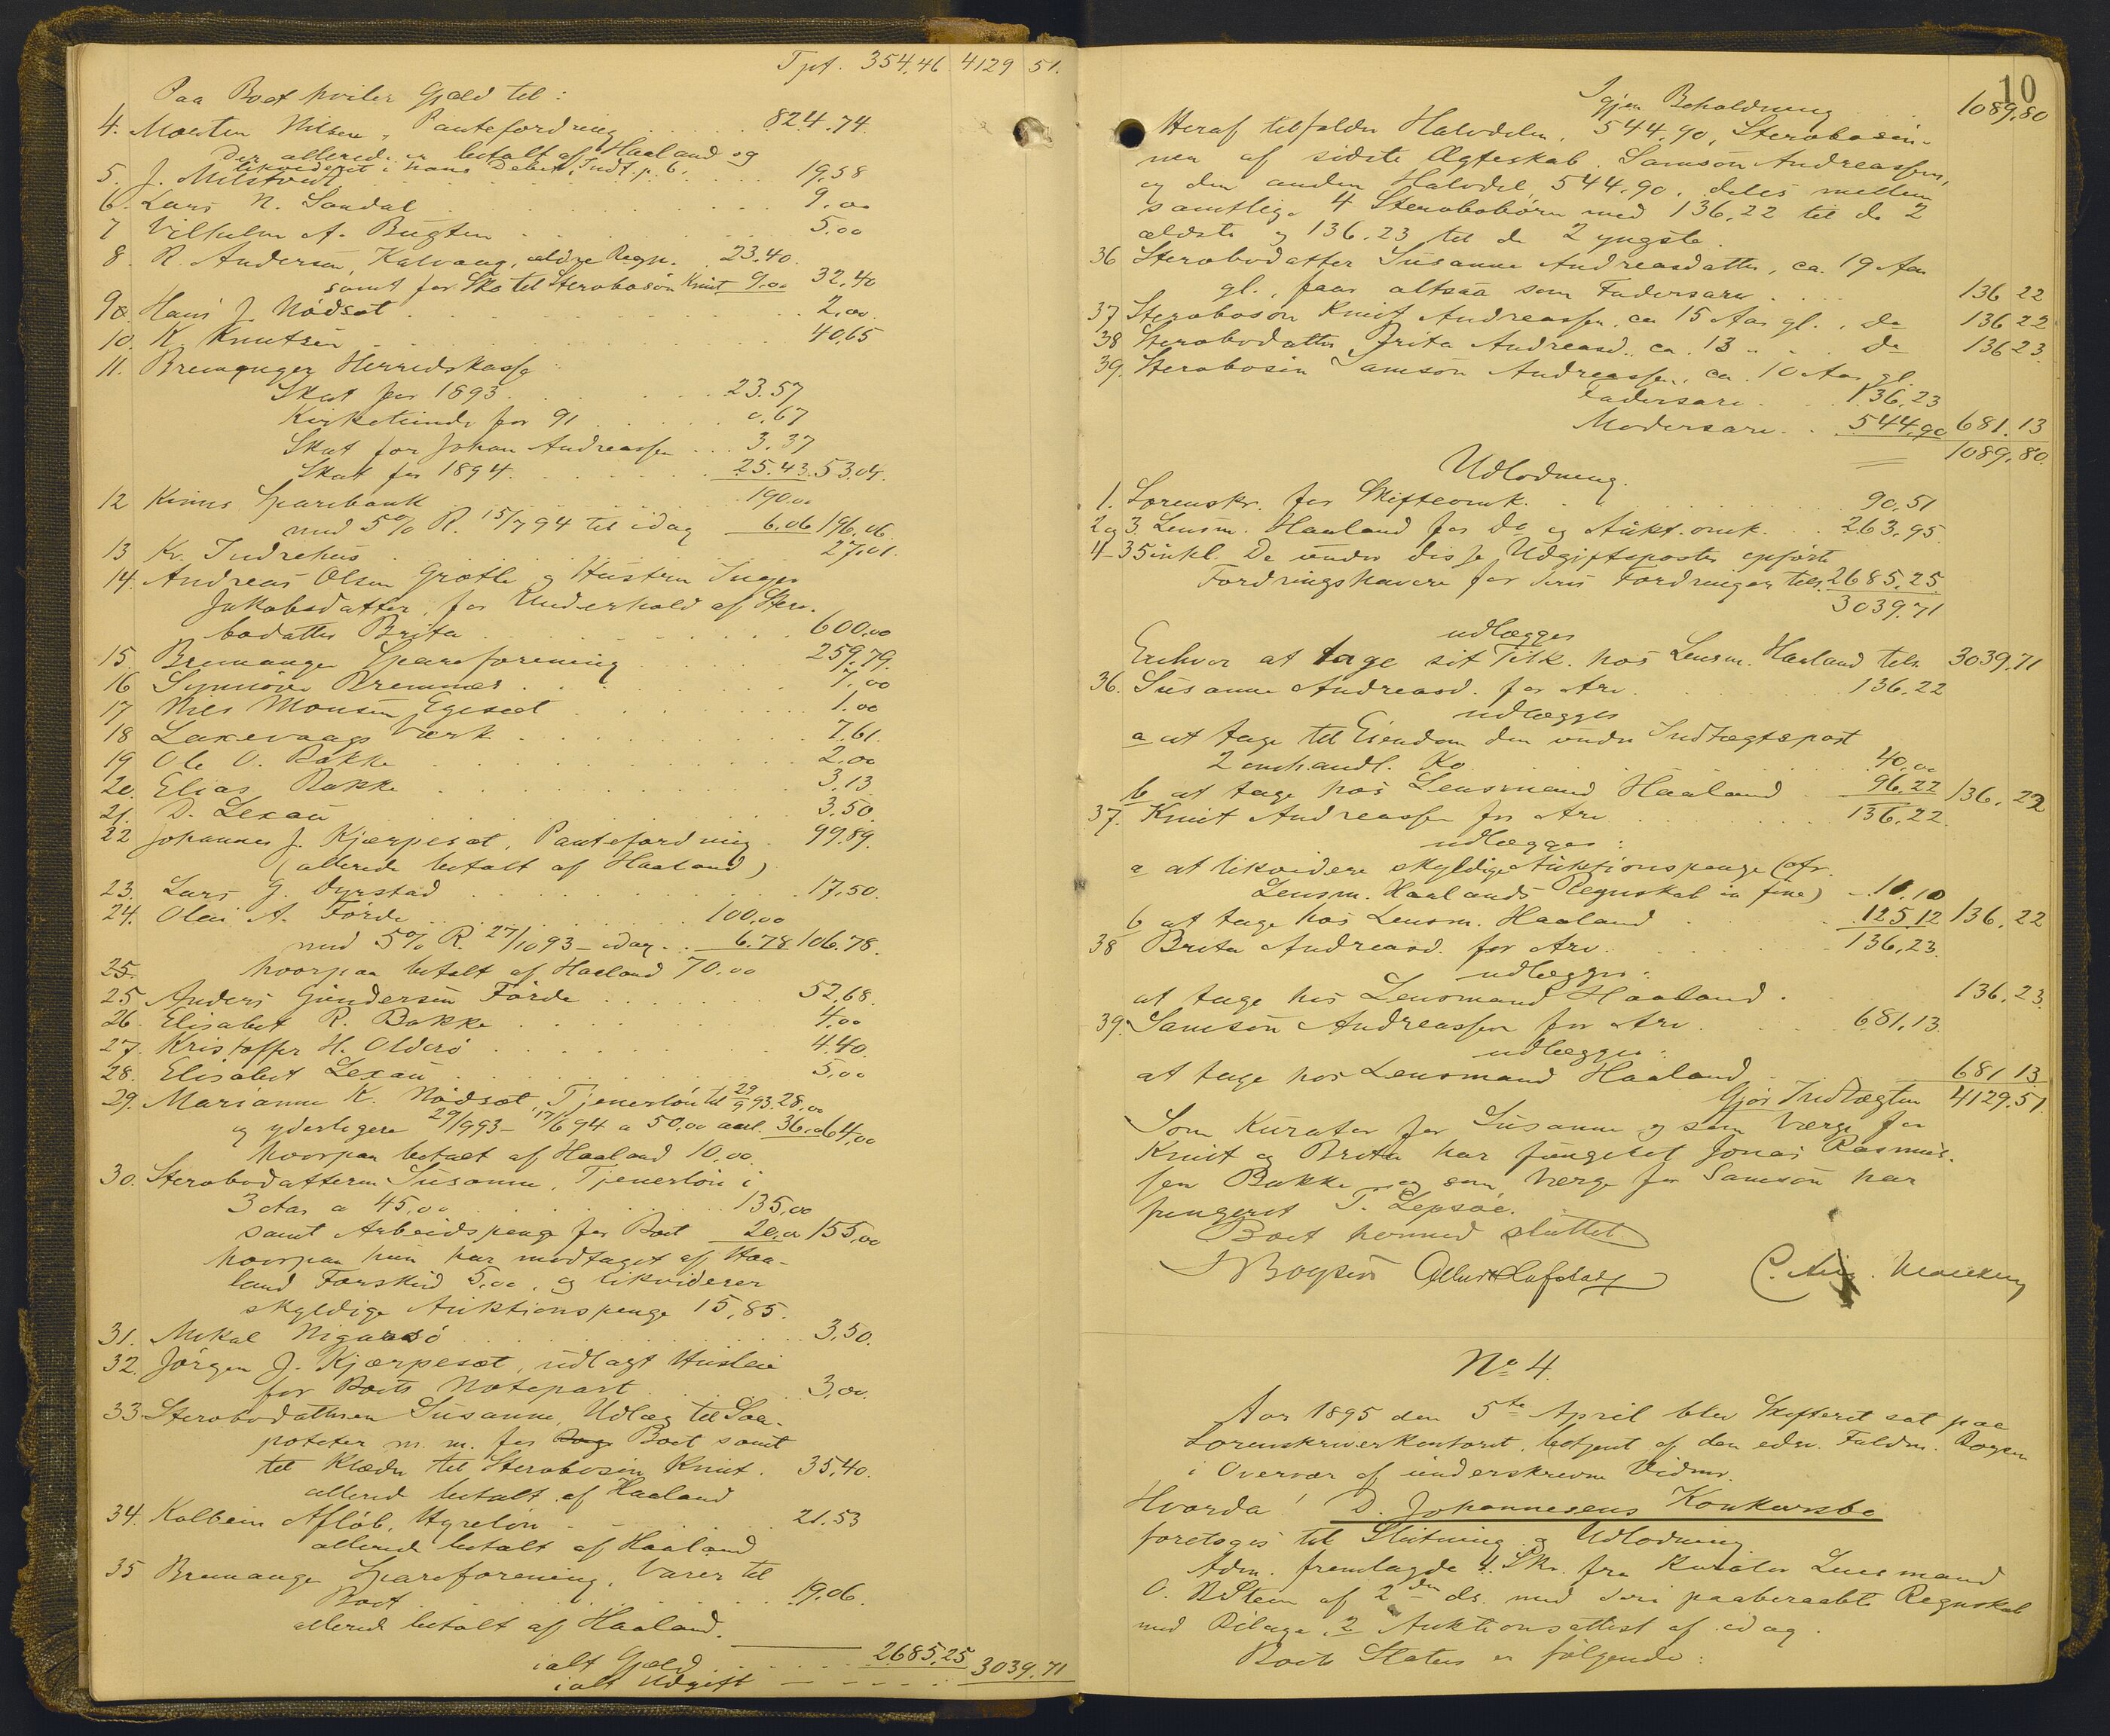 Tpt. 354.46 4129 51.
Paa Boet hviler Gjæld til:
4. Morten Nilsen, Pantefordring 824.74.
Der allerede er betalt af Haaland og
likvideret i hans Debet, Indt. p. 6.
5. J. Milstvedt 19.58
6. Lars N. Sandal 9.00
7 Vilhelm A. Bugten 5.00
8. R. Andersen, Kalvaag, ældre Regn. 23.40.
samt for Sko til Sterboson Knut 9.00 32.40
9. Hans J. Nödsæt 2.00
10. K. Knutsen 40.65
11. Bremanger Herredskasse
Skat for 1893 23.57
Kirketiende for 91 0.67
Skat for Johan Andreassen 3.37
Skat for 1894. 25.43. 53.04.
12 Kinns Sparebank 190.00
med 5% R. 15/7 94 til idag 6.06 196.06
13 Kr. Indrehus 27.01.
14. Andreas Olsen Grotle og Hustru Inger
Jakobsdatter, for Underhold af Ster-
bodatter Brita 600.00
15. Bremanger Spareforening 259.79.
16 Synnöve Bremnes 7.00
17 Nils Monsen Egeset 1.00
18 Laxevaags Værk 7.61.
19 Ole O. Bakke 2.00
20. Elias Bakke 3.13
21. D. Lexau 3.50.
22 Johannes J. Kjærpesæt, Pantefordring 99.89.
(allerede betalt af Haaland)
23. Lars G. Dyrstad 17.50.
24. Olai A. Förde 100.00
med 5% R. 27/10 93 - idag 6.78 106.78.
25. hvorpaa betalt af Haaland 70.00
25 Anders Gundersen Förde 52.68.
26. Elisabet R. Bakke 4.00
27. Kristoffer H. Olderö 4.40.
28. Elisabet Lexau 5.00
29. Marianne K. Nödsæt, Tjenerlön til 29/9 93. 28.00
og yderligere 29/9 93 - 17/6 94 a 50.00 aarl. 36.00 64.00
hvorpaa betalt af Haaland 10.00.
30. Sterbodatteren Susanne, Tjenerlön i
3 Aar a 45.00 135.00
samt Arbeidspenge for Boet 20.00 155.00
hvorpaa hun har modtaget af Haa-
land Forskud 5.00, og likviderer
skyldige Auktionspenge 15,85.
31. Mikal Nigardsö 3.50.
32. Jörgen J. Kjærpesæt, udlagt Husleie
for Boets Notepart 3.00.
33 Sterbodatteren Susanne, Udlæg til Saa-
poteter m. m. for Boet samt
til Klæder til Sterbosön Knut. 35.40.
allerede betalt af Haaland
34. Kolbein Aflöb, Hyrelön 21.53
allerede betalt af Haaland
35 Bremanger Spareforening, Varer til
Boet 19.06.
allerede betalt af Haaland.
ialt Gjæld 2685.25
ialt Udgift 3039.71
10
Igjen Beholdning 1089.80
Heraf tilfalder Halvdelen, 544,90, Sterbosön-
nen af sidste Ægteskab, Samson Andreassen,
og den anden Halvdel, 544,90, deles mellem
samtlige 4 Sterbobörn med 136,22 til de 2
ældste og 136.23 til de 2 yngste.
36 Sterbodatter Susanne Andreasdatter, ca. 19 Aar
gl., faar altsaa som Fadersarv 136 22
37 Sterboson Knut Andreassen, ca 15 Aar gl., do 136 22
38 Sterbodatter Brita Andreasd., ca. 13 " " do 136 23.
39. Sterbosön Samson Andreassen, ca. 10 Aar gl.
Fadersarv 136.23
Modersarv 544.90 681.13
1089.80.
Udlodning.
1. Sorenskr. for Skifteomk. 90.51
2 og 3 Lensm. Haaland for Do og Aukt.omk. 263.95.
4-35 inkl. De under disse Udgiftsposter opförte
Fordringshavere for deres Fordringer tils. 2685.25.
3039.71
udlægges
Enhver at tage sit Tilk. hos Lensm. Haaland tils. 3039.71
36. Susanne Andreasd. for Arv 136.22
udlægges
a at tage til Eiendom den under Indtægtspost
2 omhandl. Ko 40.00
b at tage hos Lensmand Haaland 96.22 136.22
37. Knut Andreassen for Arv 136.22.
udlægges:
a at likvidere skyldige Auktionspenge (cfr.
Lensm. Haalands Regnskab in fine) 11.10
b at tage hos Lensm. Haaland 125.12 136.22
38 Brita Andreasd. for Arv 136.23.
udlægges:
at tage hos Lensmand Haaland. 136.23.
39. Samson Andreassen for Arv. 681.13.
udlægges:
at tage hos Lensmand Haaland 681 13.
Gjör Indtægten 4129.51.
Som Kurator for Susanne og som Værge for
Knut og Brita har fungeret Jonas Rasmus-
sen Bakke og som Værge for Samson har
fungeret T. Lepsöe.
Boet hermed sluttet
No 4.
Aar 1895 den 5te April blev Skifteret sat paa
Sorenskriverkontoret, betjent af den edsv. Fuldm. Boysen
i Overvær af underskrevne Vidner.
Hvorda! D. Johannesens Konkursbo
foretoges til Slutning og Udlodning
Adm. fremlagde 1. Skr. fra Kurator Lensmand
af 2den ds. med deri paaberaabte Regnskab
med Bilage, 2 Auktionsattest af idag.
Boets Status er fölgende: